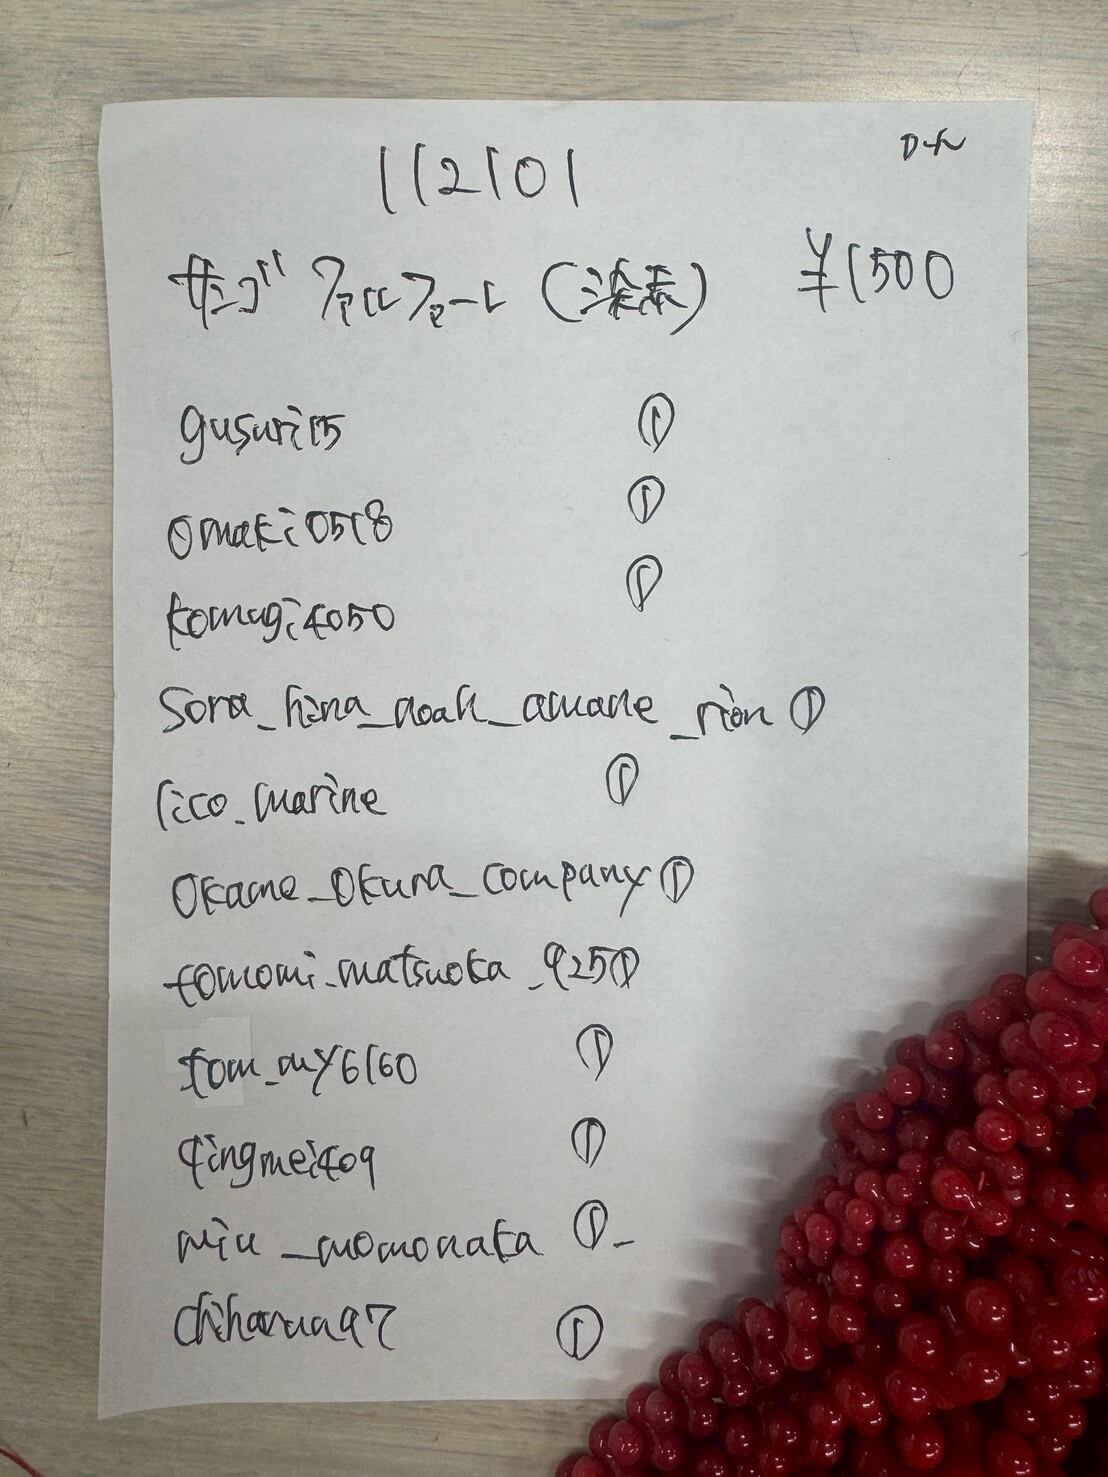 112101
サンゴ (染赤) ¥1500
gusuri15 ①
omaki0518 ①
komugi4050 ①
sora_hina_noah_amane_rion ①
rico.marine ①
okame_okura_company ①
tomomi.matsuoka_925 ①
tom_my6160 ①
qingmei409 ①
miu_momonaka ①
chiharua97 ①